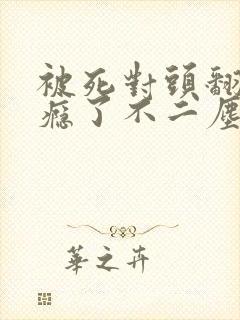 被死對頭翻
瘾了不二塵
華之卉